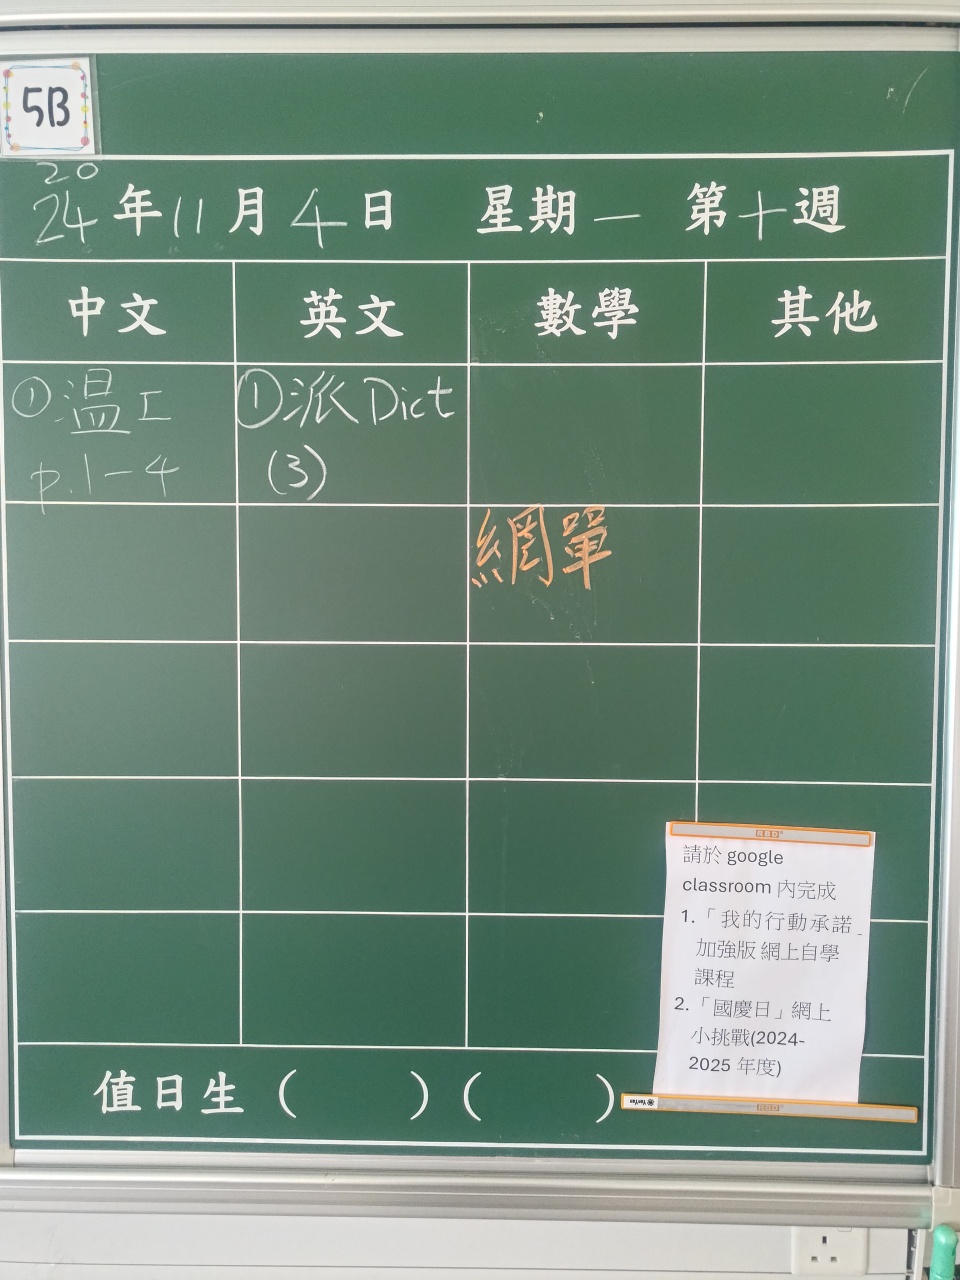 5B
20
24年11月4日 星期一 第十週
中文 英文 數學 其他
①溫工
p.1-4
①派Dict
(3)
網單
RBD
請於 google
classroom 內完成
1.「我的行動承諾_
加強版 網上自學
課程
2.「國慶日」網上
小挑戰(2024-
2025 年度)
值日生 ( ) ( )
RBD